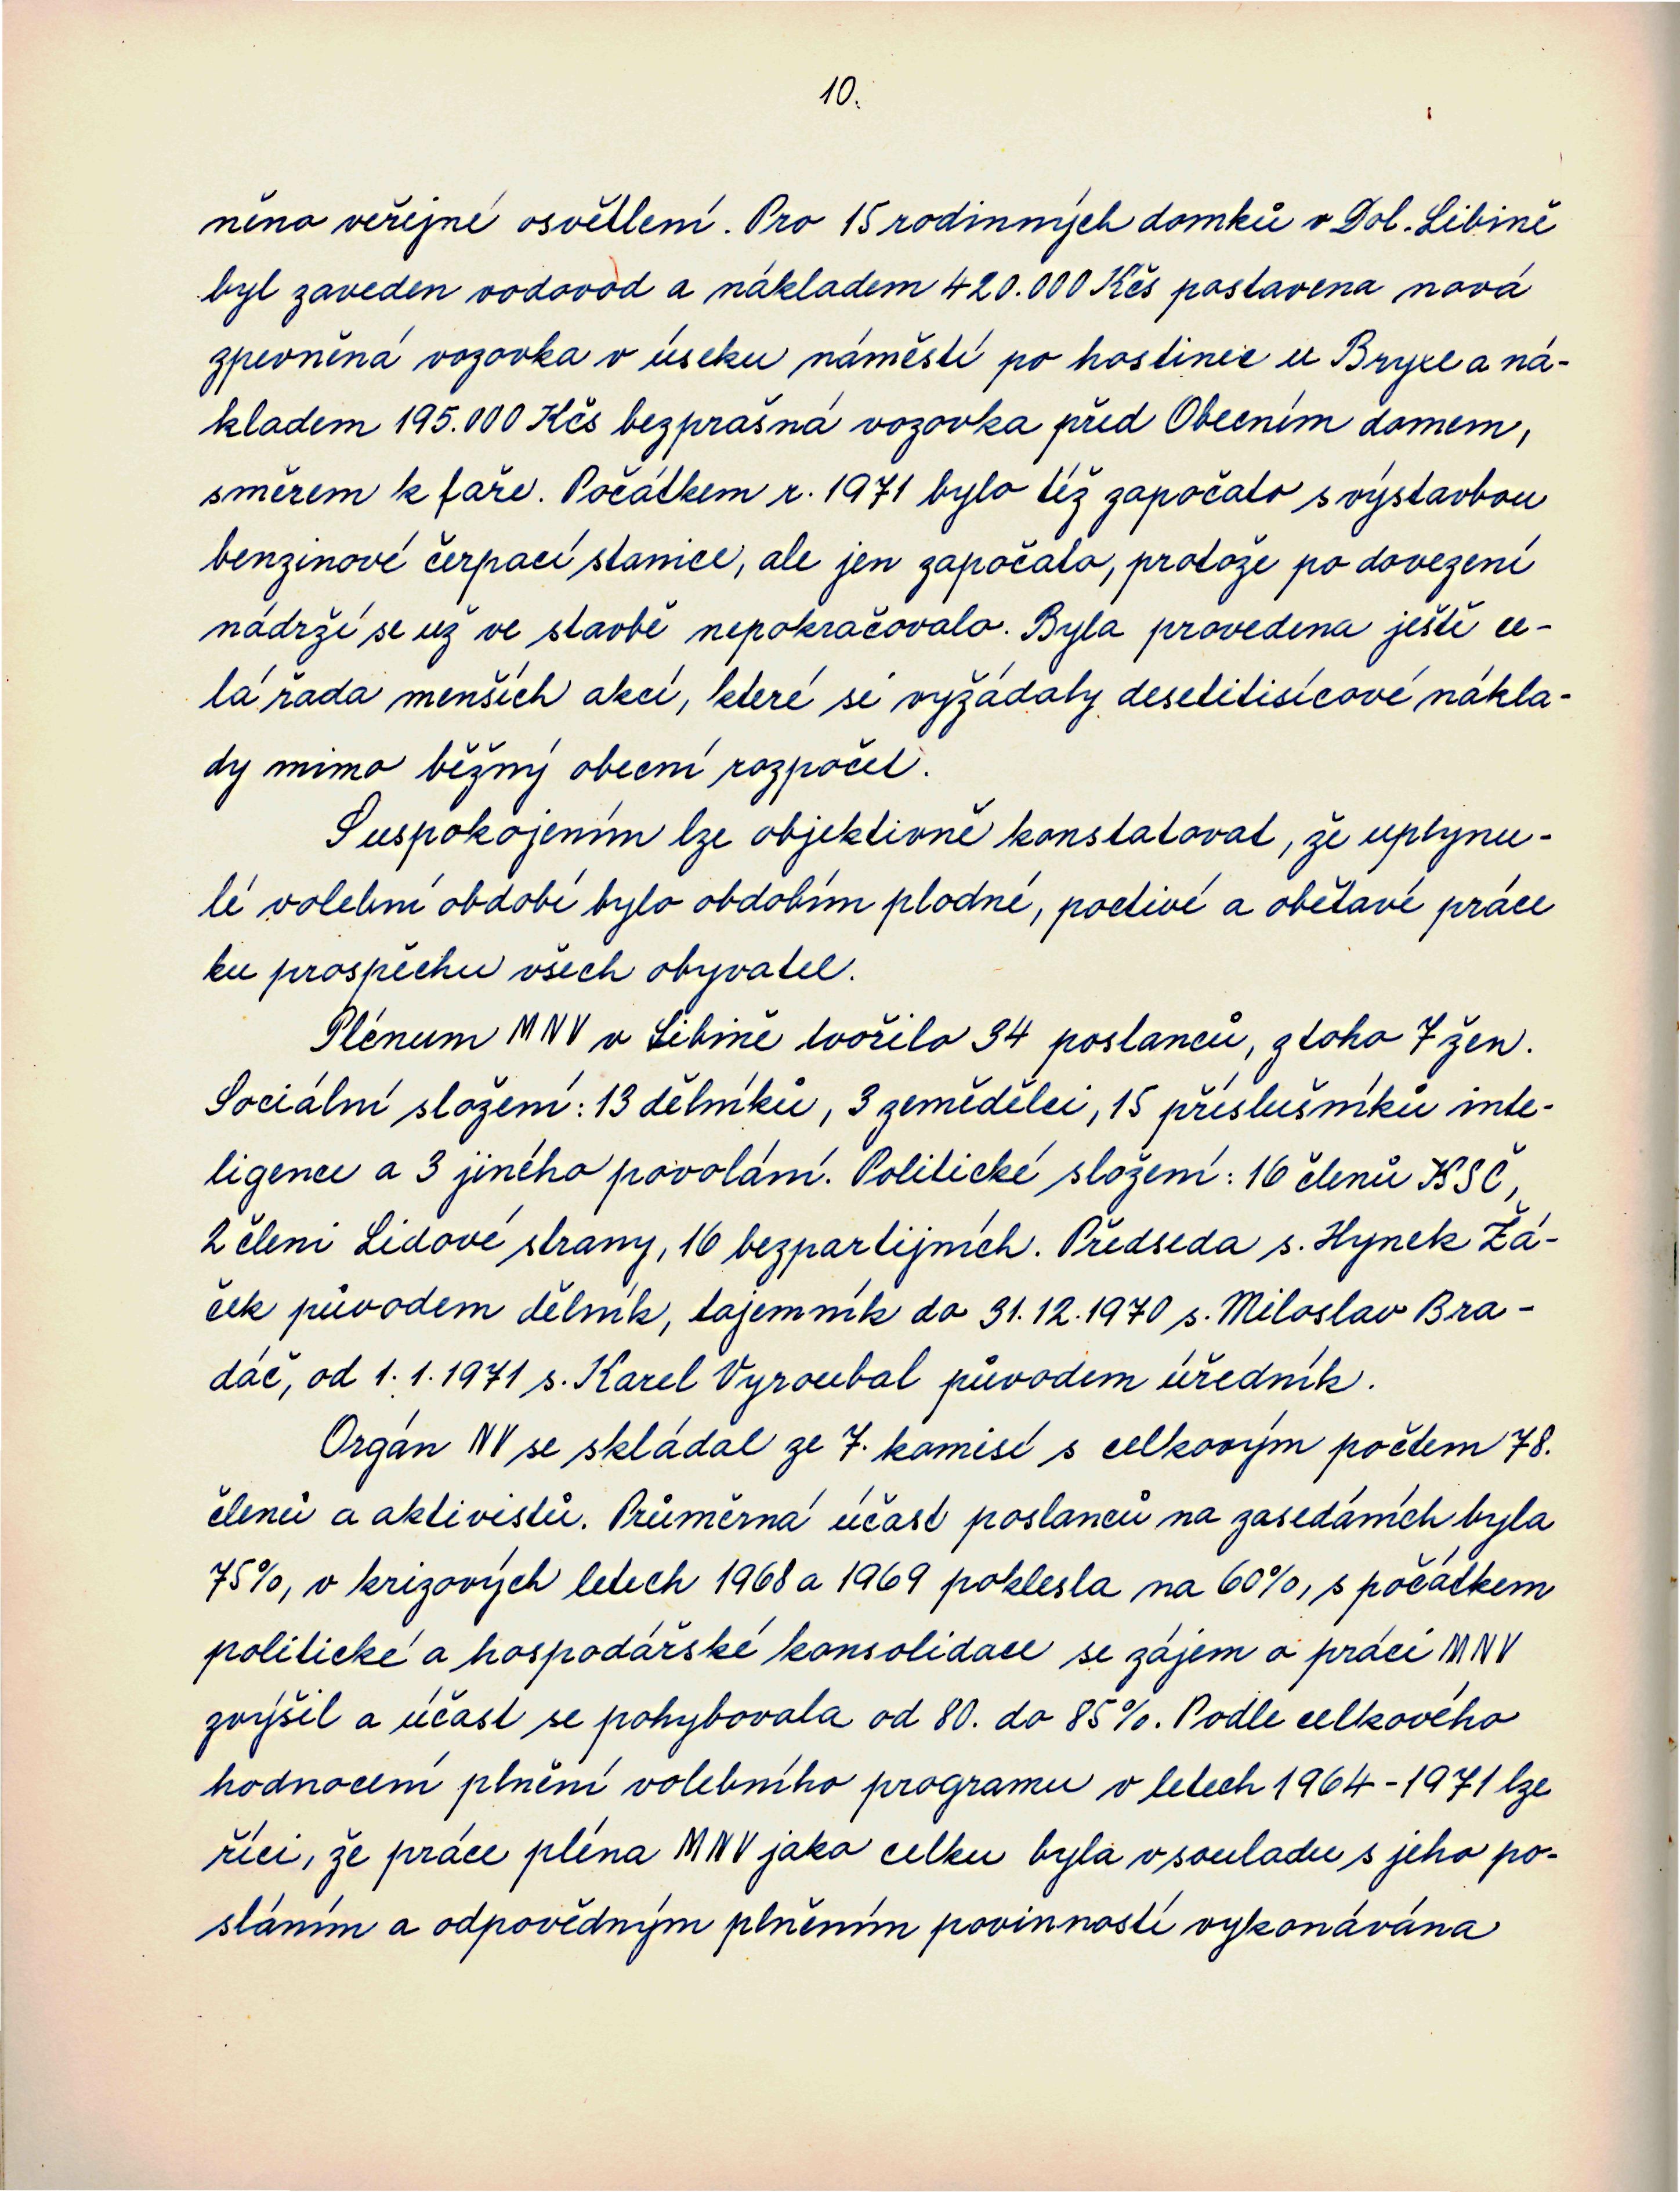 10.
něno veřejné osvětlení. Pro 15 rodinných domků v Dol. Libině
byl zaveden vodovod a nákladem 420.000 Kčs postavena nová
zpevněná vozovka v úseku náměstí po hostinec u Bryxe a ná-
kladem 195.000 Kčs bezprašná vozovka před Obecním domem,
směrem k faře. Počátkem r. 1971 bylo též započato s výstavbou
benzinové čerpací stanice, ale jen započato, protože po dovezení
nádrží se už ve stavbě nepokračovalo. Byla provedena ještě ce-
lá řada menších akcí, které si vyžádaly desetitisícové nákla-
dy mimo běžný obecní rozpočet.
S uspokojením lze objektivně konstatovat, že uplynu-
lé volební období bylo obdobím plodné, poctivé a obětavé práce
ku prospěchu všech obyvatel.
Plénum MNV v Libině tvořilo 34 poslanců, z toho 7 žen.
Sociální složení: 13 dělníků, 3 zemědělci, 15 příslušníků inte-
ligence a 3 jiného povolání. Politické složení: 16 členů KSČ,
2 členi Lidové strany, 16 bezpartijních. Předseda s. Hynek Žá-
ček původem dělník, tajemník do 31.12.1970 s. Miloslav Bra-
dáč, od 1.1.1971 s. Karel Vyroubal původem úředník.
Orgán NV se skládal ze 7. komisí s celkovým počtem 78.
členů a aktivistů. Průměrná účast poslanců na zasedáních byla
75%, v krizových letech 1968 a 1969 poklesla na 60%, s počátkem
politické a hospodářské konsolidace se zájem o práci MNV
zvýšil a účast se pohybovala od 80. do 85%. Podle celkového
hodnocení plnění volebního programu v letech 1964-1971 lze
říci, že práce pléna MNV jako celku byla v souladu s jeho po-
sláním a odpovědným plněním povinností vykonávána